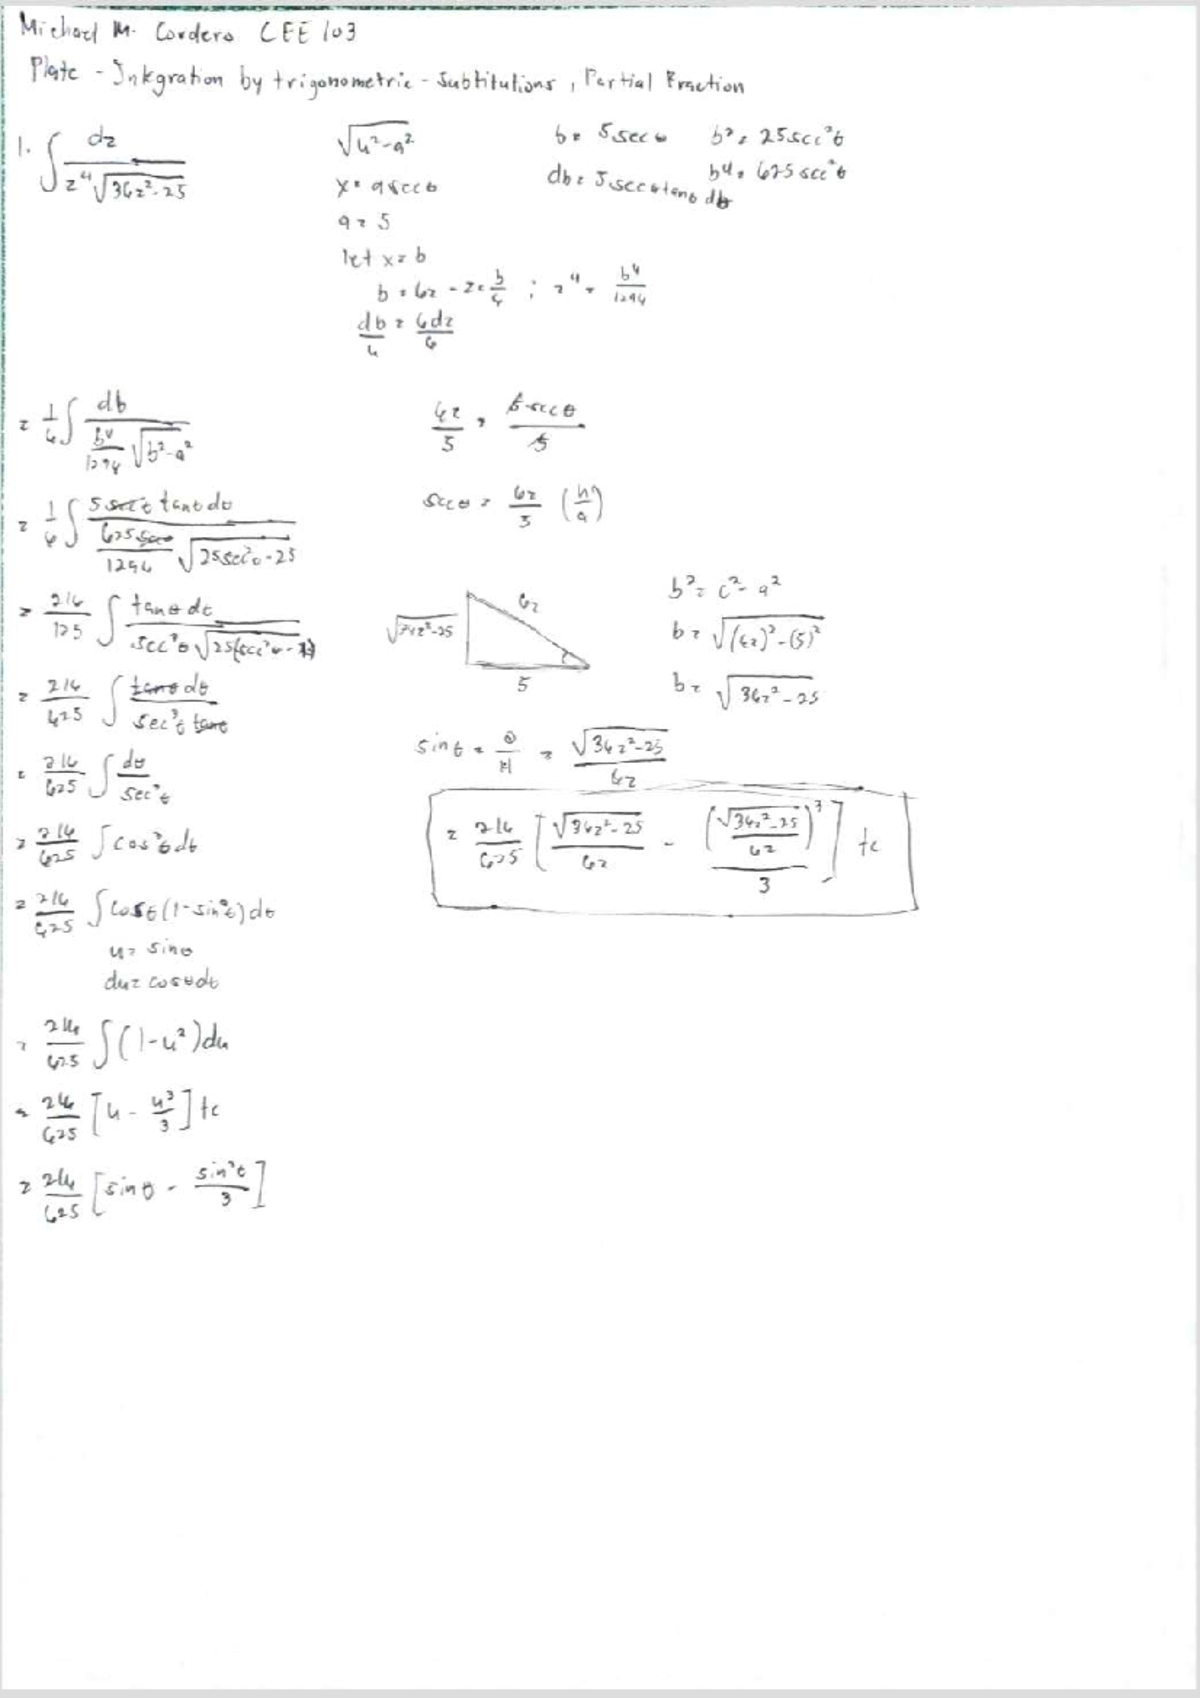 Michael M. Cordero CEE 103
Plate - Integration by trigonometric - Subtitutions, Partial Fraction
1. ∫ dz / (z⁴ √(36z² - 25))
√(u² - a²)
x = a sec θ
a = 5
let x = b
b = 6z - z = b/6 ; z⁴ = b⁴/1296
db/6 = 6dz/6
b = 5 sec θ b² = 25 sec² θ
db = 5 sec θ tan θ dθ b⁴ = 625 sec⁴ θ
= 1/6 ∫ db / ((b⁴/1296) √(b² - a²))
= 1/6 ∫ 5 sec θ tan θ dθ / ((625 sec θ/1296) √(25 sec² θ - 25))
= 216/125 ∫ tan θ dθ / (sec³ θ √(25(sec² θ - 1)))
= 216/625 ∫ tan θ dθ / (sec³ θ tan θ)
= 216/625 ∫ dθ / sec³ θ
= 216/625 ∫ cos³ θ dθ
= 216/625 ∫ cos θ (1 - sin² θ) dθ
u = sin θ
du = cos θ dθ
= 216/625 ∫ (1 - u²) du
= 216/625 [u - u³/3] + c
= 216/625 [sin θ - sin³ θ/3]
6z/5 = 5 sec θ/5
sec θ = 6z/5 (h/a)
√(36z² - 25)
6z
5
b² = c² - a²
b = √((6z)² - (5)²)
b = √(36z² - 25)
sin θ = O/H = √(36z² - 25)/6z
= 216/625 [√(36z² - 25)/6z - (√(36z² - 25)/6z)³/3] + c